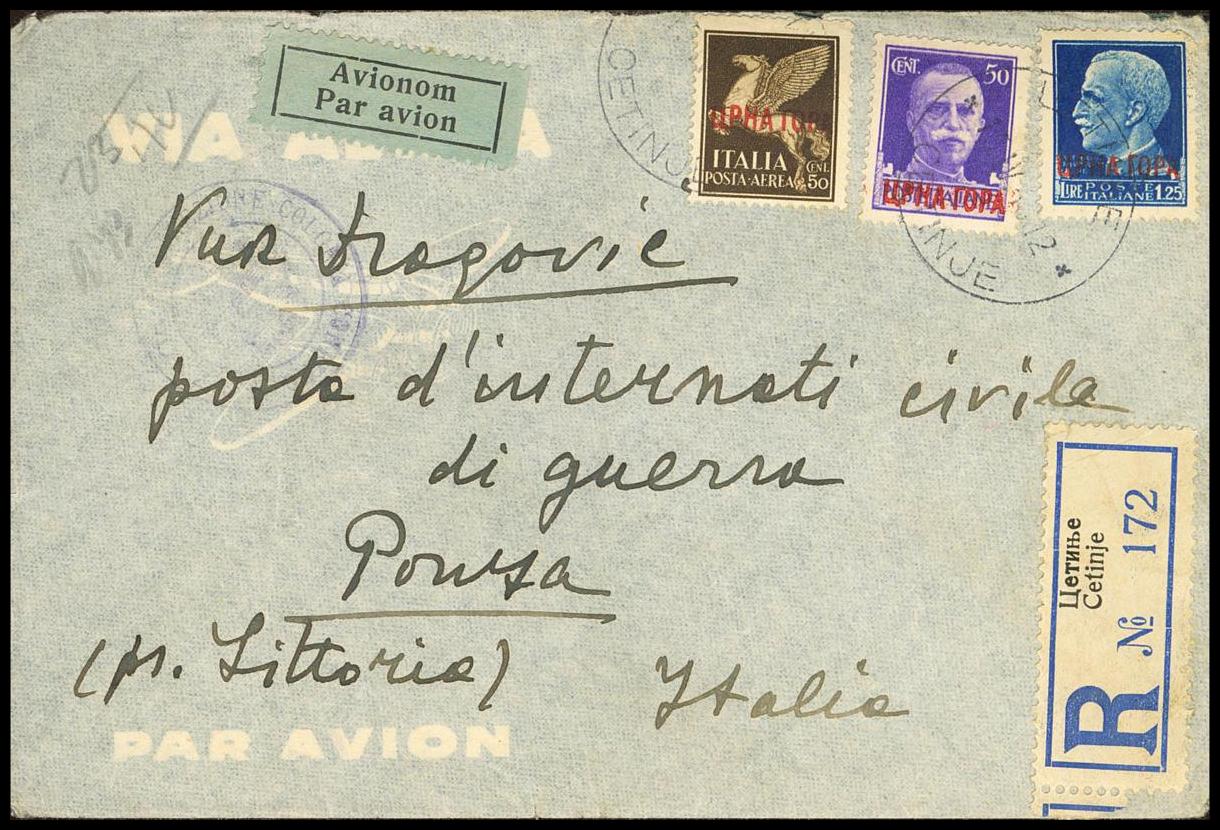 Avionom
Par avion
CETINJE
ЦРНА ГОРА
ITALIA
POSTA-AEREA CENT. 50
CENT. 50
ЦРНА ГОРА
ЦРНА ГОРА
LIRE POSTE ITALIANE 1.25
CETINJE
Vuk Dragović
posta d'internati civila
di guerra
Ponza
(pr. Littoria)
Italia
PAR AVION
Цетиње
Cetinje
R № 172